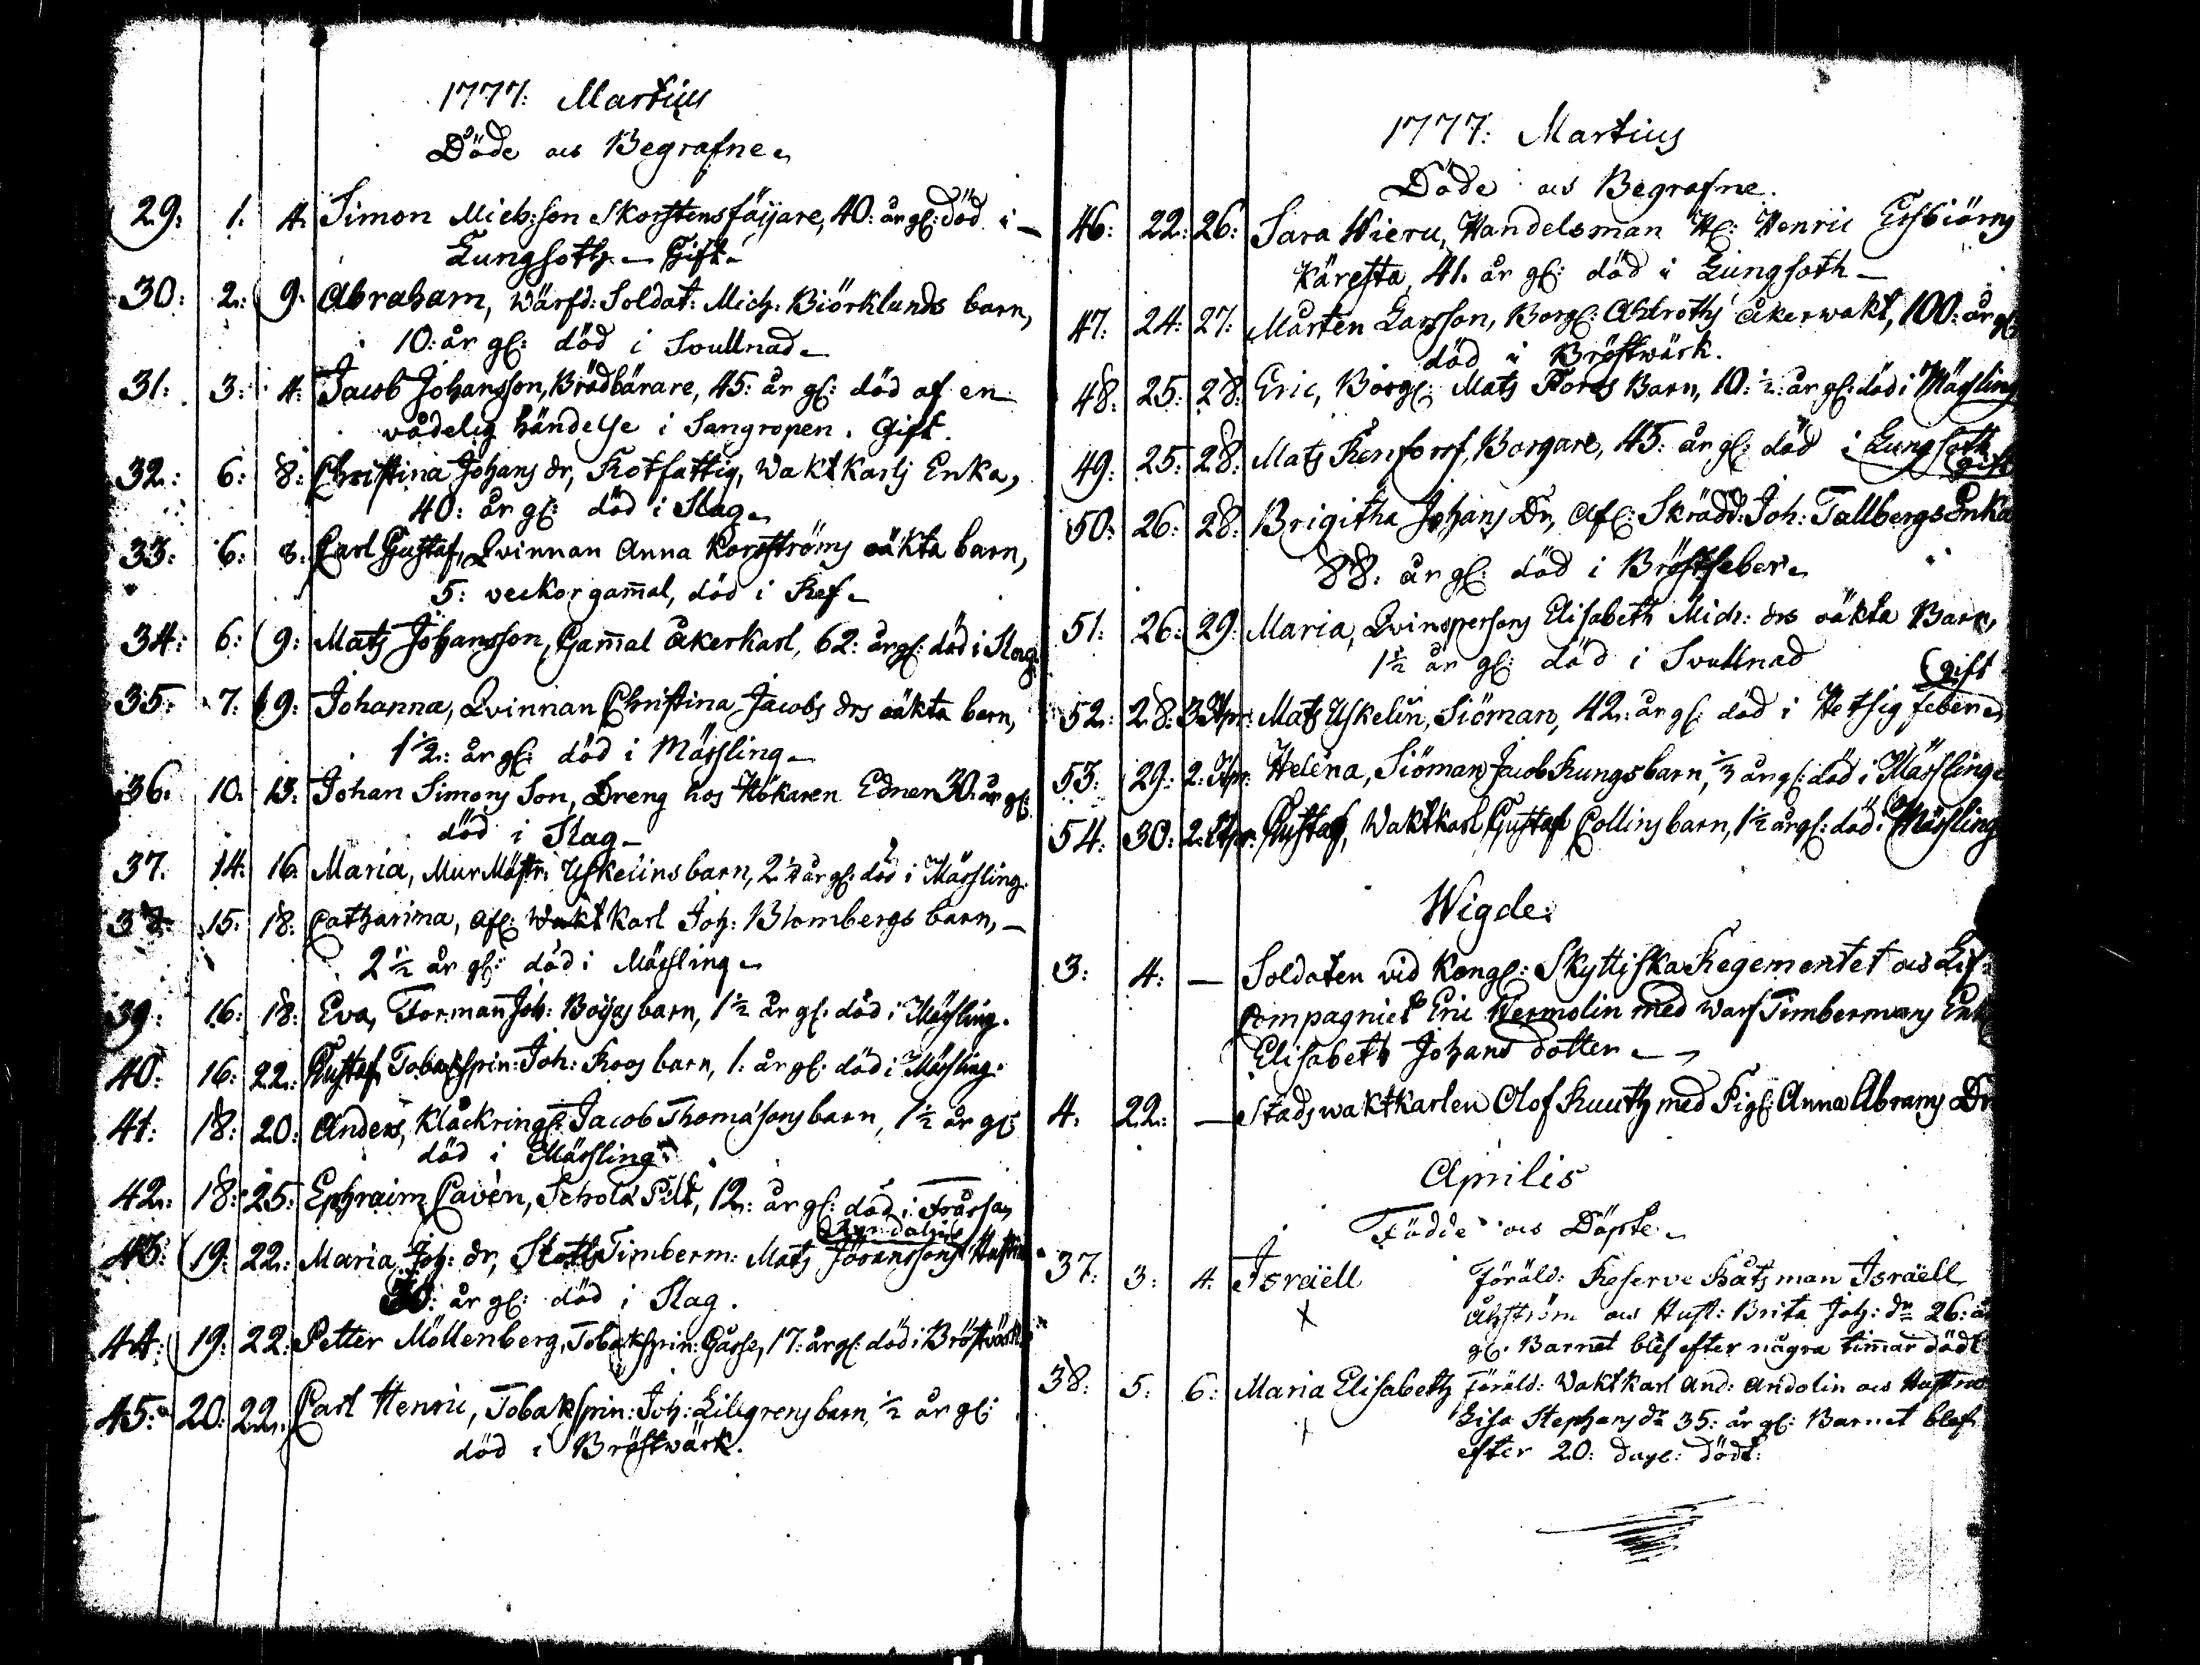 1777: Martius
Döde och Begrafne
29: 1. 4. Simon Mich:son Skorstensfäijare, 40: år gl: död i
Lungsoth. Gift
30: 2: 9. Abraham, Wärfd: Soldat: Mich. Biörklunds barn,
10: år gl: död i Svullnad
31: 3: 4: Jacob Johansson, Brödbärare, 45: år gl: död af en
vådelig händelse i Sangropen. Gift.
32: 6: 8: Christina Johans dr, Rotfattig, Waktkarls Enka,
40: år gl: död i Slag
33: 6: 8: Carl Gustaf, Qvinnan Anna Korsströms oäkta barn,
5: veckor gam̄al, död i Ref
34: 6: 9: Mats Johansson, Gam̄al Åkerkarl, 62: år gl: död i Slag
35: 7: 9: Johanna, Qvinnan Christina Jacobs drs oäkta barn,
1 1/2: år gl: död i Mässling
36. 10. 13: Johan Simons Son, Dreng hos Hökaren Edner 30: år gl:
död i Slag
37. 14: 16. Maria, MurMästr: Uskelins barn, 2 1/2 år gl: död i Mässling.
38: 15: 18: Catharina, Afl: Waktkarl Joh: Blombergs barn,
2 1/2 år gl: död i Mässling
39: 16: 18: Eva, Forman Joh: Boijs barn, 1 1/2 år gl: död i Mässling.
40: 16: 22: Gustaf, Tobakspin: Joh: Roos barn, 1: år gl: död i Mässling.
41: 18: 20: Anders, Klåckring: Jacob Thomæsons barn, 1 1/2 år gl:
död i Mässling
42: 18: 25: Ephraim Cavén, Schola Pilt, 12: år gl: död i Fråssan
43: 19: 22: Maria Joh: dr, Timberm: Mats Jöranssons Hustru
30: år gl: död i Slag.
44: 19: 22: Petter Möllenberg, Tobakspin: Gåsse, 17: år gl: död i Bröstvärk
45: 20: 22: Carl Henric, Tobakspin: Joh: Lilegrens barn, 1/2 år gl:
död i Bröstwärk.
1777: Martius
Döde och Begrafne.
46: 22: 26: Sara Wieru, Handelsman Hl: Henric Esbiörns
Käresta, 41. år gl: död i Lungsoth
47: 24: 27: Mårten Larsson, Borgl: Ahlroths åkerwakt, 100: år gl:
död i Bröstwärk.
48: 25: 28: Eric, Borgl: Mats Fors Barn, 10: 1/2: år gl: död i Mässling
49: 25: 28: Mats Renforss, Borgare, 45: år gl: död i Lungsoth
gift
50: 26: 28: Brigitha Johans Dr, Afl: Skrädd: Joh: Tallbergs Enka
88: år gl: död i Bröstfeber
51: 26: 29: Maria, Qvinspersons Elisabeth Mich: drs oäkta Barn,
1 1/2 år gl: död i Svullnad
gift
52: 28: 3 Apr: Mats Uskelin, Siöman, 42: år gl: död i Hetsig feber
53: 29: 2: Apr: Helena, Siöman Jacob Kungs barn, 1/3 år gl: död i Mässling
54: 30: 2: Apr: Gustaf, Waktkarl Gustaf Collins barn, 1 1/2 år gl: död i Mässling
Wigde:
3: 4: — Soldaten vid Kongl: Skyttska Regementet och Lif:
Compagniet Eric Hermolin med Warf Timbermans Enk
Elisabeth Johans dotter
4. 22: — Stads waktkarlen Olof Kuuth med Pigl: Anna Abrams Dr
Aprilis
Födde och Döpte
37: 3: 4. Israëll Föräld: Reserve Båtsman Israëll
Åhström och Hust: Brita Joh: dr 26: å
gl. Barnet blef efter några tim̄ar dödt
38: 5: 6: Maria Elisabeth Föräld: Waktkarl And: Andolin och Hustru
Lisa Stephans dr 35: år gl: Barnet blef
efter 20: dagl: dödt.